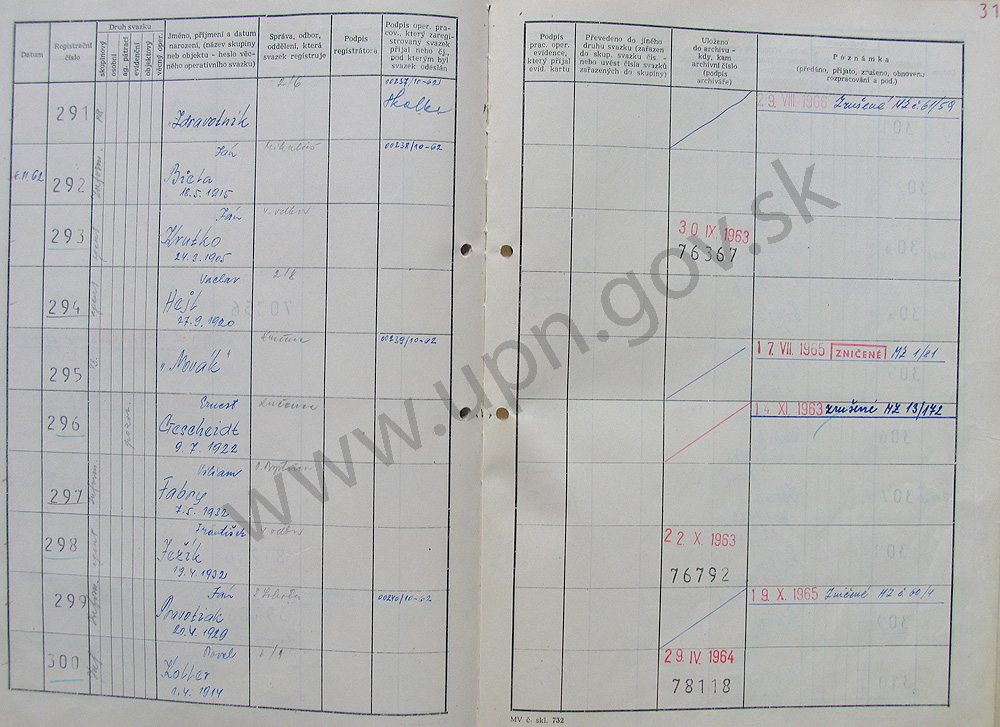 31
Datum
Registrační číslo
Druh svazku
skupinový
osobní
ag. pátrací
evidenční
objektový
věcný oper.
Jméno, příjmení a datum
narození, (název skupiny
neb objektu - heslo věc-
ného operativního svazku)
Správa, odbor,
oddělení, která
svazek registruje
Podpis
registrátora
Podpis oper. pra-
cov., který zaregi-
stroval svazek
přijal nebo čj.,
pod kterým byl
svazek odeslán
Podpis
prac. oper.
evidence,
který přijal
evid. kartu
Převedeno do jiného
druhu svazku (zařazen
do skup. svazku čís. -
nebo uvést čísla svazků
zařazených do skupiny)
Uloženo
do archivu -
kdy, kam
archivní číslo
(podpis
archiváře)
Poznámka
(předáno, přijato, zrušeno, obnoveno
rozpracování a pod.)
291 „Zdravotník 2/6 00237/10-62
29. VIII. 1966 Zrušené MZ č 61/59
6.11.62 292 Ján 00238/10-62
Bieta
18.5.1915
293 Ján v. odbor
Krutko
24.3.1905
30 IX. 1963
76367
294 agent Vaclav 2/6
Hejl
27.9.1920
295 „Novák“ Lučenec 00239/10-62
17. VII. 1965 ZNIČENÉ MZ 1/81
296 Ernest Lučenec
Gescheidt
9.7.1922
14 XI. 1963 zrušené MZ 13/172
297 Viliam
Fabry
7.5.1932
298 agent František v. odbor
Ježík
19.4.1932
22 X. 1963
76792
299 Ján 00240/10-62
Pravotiak
20.4.1929
19 X. 1965 Zničené MZ č 60/4
300 Pavel
Kotler
1.4.1914
29. IV. 1964
78118
MV č. skl. 732
www.upn.gov.sk